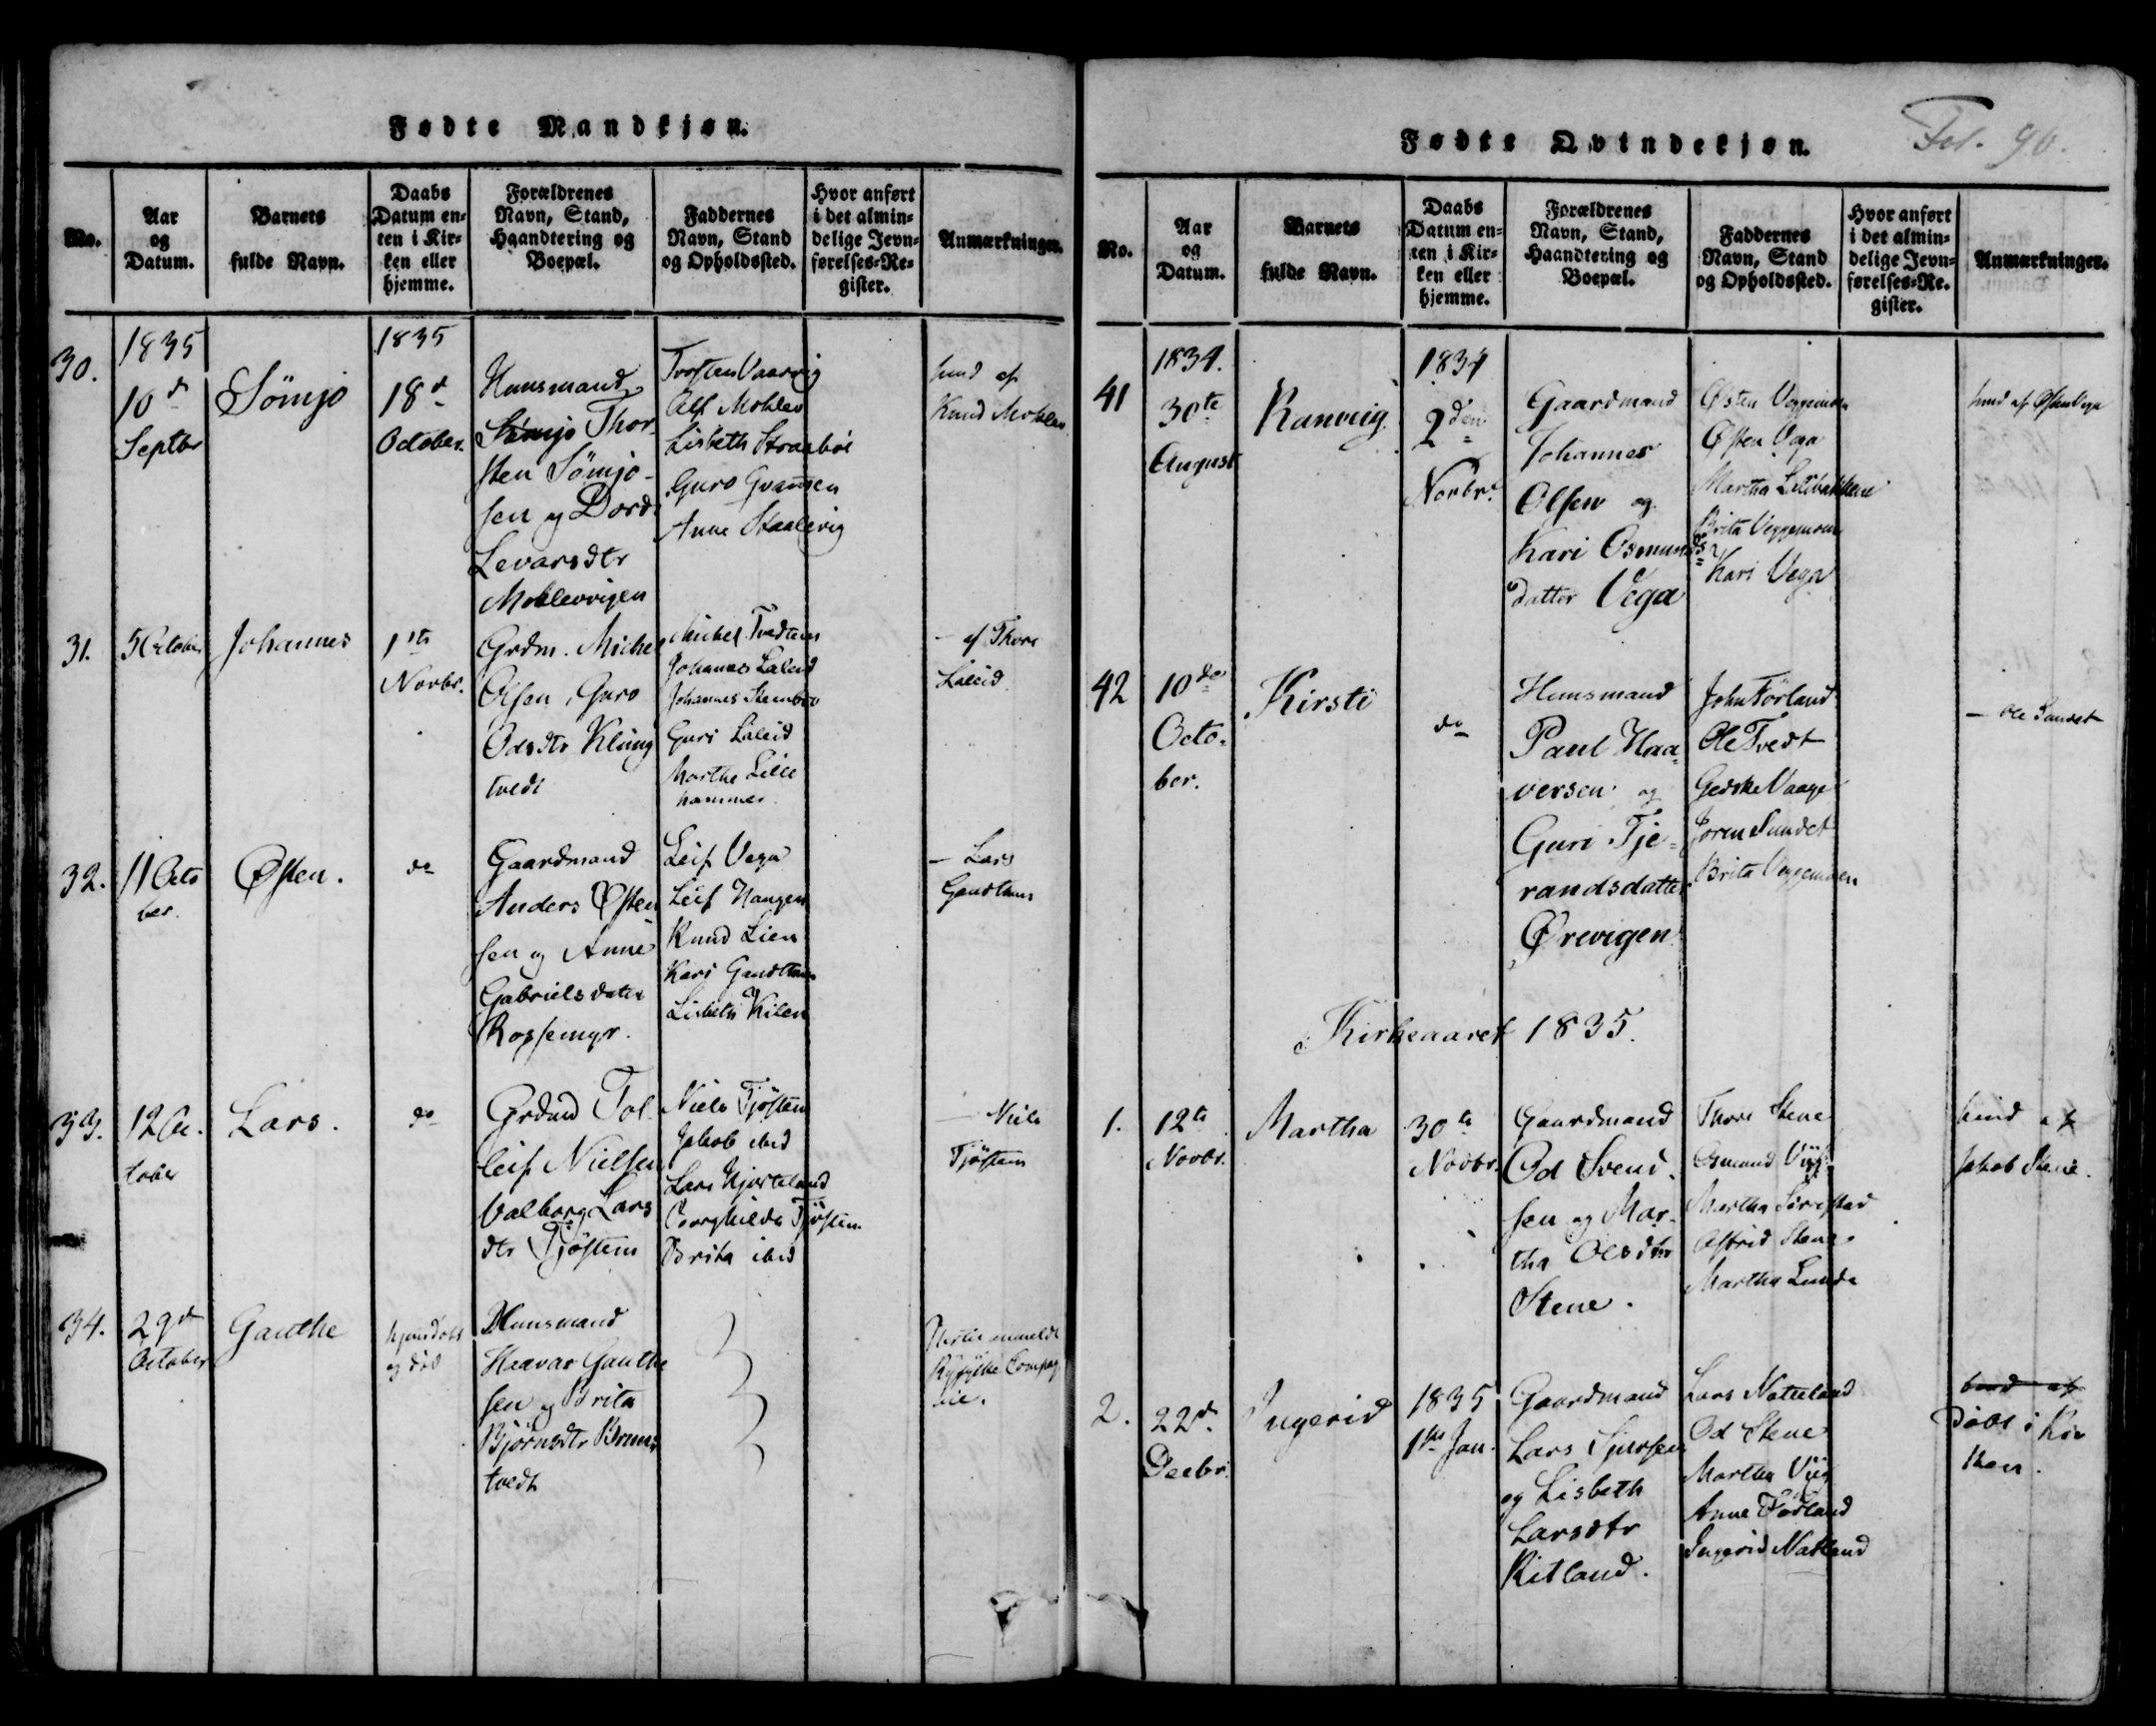 Fødte Mandkjøn.
No.
Aar
og
Datum.
Barnets
fulde Navn.
Daabs
Datum en-
ten i Kir-
ken eller
hjemme.
Forældrenes
Navn, Stand,
Haandtering og
Boepæl.
Faddernes
Navn, Stand
og Opholdssted.
Hvor anført
i det almin-
delige Jevn-
førelses-Re-
gister.
Anmærkninger.
30.
1835
10d
Septbr
Sömjo
1835
18d
October.
Huusmand
Sömjo Thor-
sten Sömjo-
sen og Dord
Levarsdtr
Moklevvigen
Torsten Vaarvig
Alf Moklev
Lisbeth Straabøe
Guro
Anne Staalevig
hmd af
Knud Moklev
31.
5 October
Johannes
1ste
Novbr.
Grdm. Michel
Olsen, Guro
Odsdtr Kling
tvedt
Michel Tvedten
Johannes Laleid
Johannes
Guri Laleid
Marthe Lille
hammer.
– af Thore
Laleid
32.
11 Octo
ber.
Østen.
do
Gaardmand
Anders Østen
sen og Anne
Gabrielsdater
Rossemyr.
Leif Vega
Leif Haugen
Knud Lien
Kari
Lisbeth Kilen
– Lars
33.
12 Oc.
tober
Lars.
do
Grdmd Tol
leif Nielsen
Valborg Lars
dtr Tjøstem
Niels Tjøstem
Jakob ibid
Lars Hjorteland
Borghilda Tjøstem
Brita ibid
– Niels
Tjøstem
34.
29d
October
Gauthe
hjemdøbt
og død
Huusmand
Haavar Gauthe
sen og Brita
Bjørnsdtr Bruns
tvedt
anmeldt
Ryfylke Compag
nie.
Fødte Qvindekjøn.
Fol. 96.
No.
Aar
og
Datum.
Barnets
fulde Navn.
Daabs
Datum en-
ten i Kir-
ken eller
hjemme.
Forældrenes
Navn, Stand,
Haandtering og
Boepæl.
Faddernes
Navn, Stand
og Opholdssted.
Hvor anført
i det almin-
delige Jevn-
førelses-Re-
gister.
Anmærkninger.
41
1834.
30te
August
Ranveig
1834
2den
Novbr.
Gaardmand
Johannes
Olsen og
Kari Osmunds
datter Vega
Østen Veggemoen
Østen Vega
Martha Lilibakkene
Brita Veggemoen
Kari Vega
hmd af Østen Vega
42
10de
Octo-
ber.
Kirsti
do
Huusmand
Paul Haa-
versen og
Guri Tje-
randsdatter
Ørevigen
John Førland
Ole Tvedt
Gedske Vaage
Joren Sundet
Brita Veggemoen
– Ole Sundet
Kirkeaaret 1835.
1.
12te
Novbr.
Martha
30te
Novbr.
Gaardmand
Od Svend-
sen og Mar-
tha Olsdtr
Stene.
Thore Stene
Osmund Viig
Martha
Astrid Stene
Martha Lunde
hmd af
Jakob Stene.
2.
22d
Decbr.
Ingerid
1835
1ste Jan.
Gaardmand
Lars Sjursen
og Lisbeth
Larsdtr
Ritland.
Lars Nateland
Od Stene
Martha Viig
Anne Førland
Ingerid Natland
hmd af
døbt i Kir
ken.